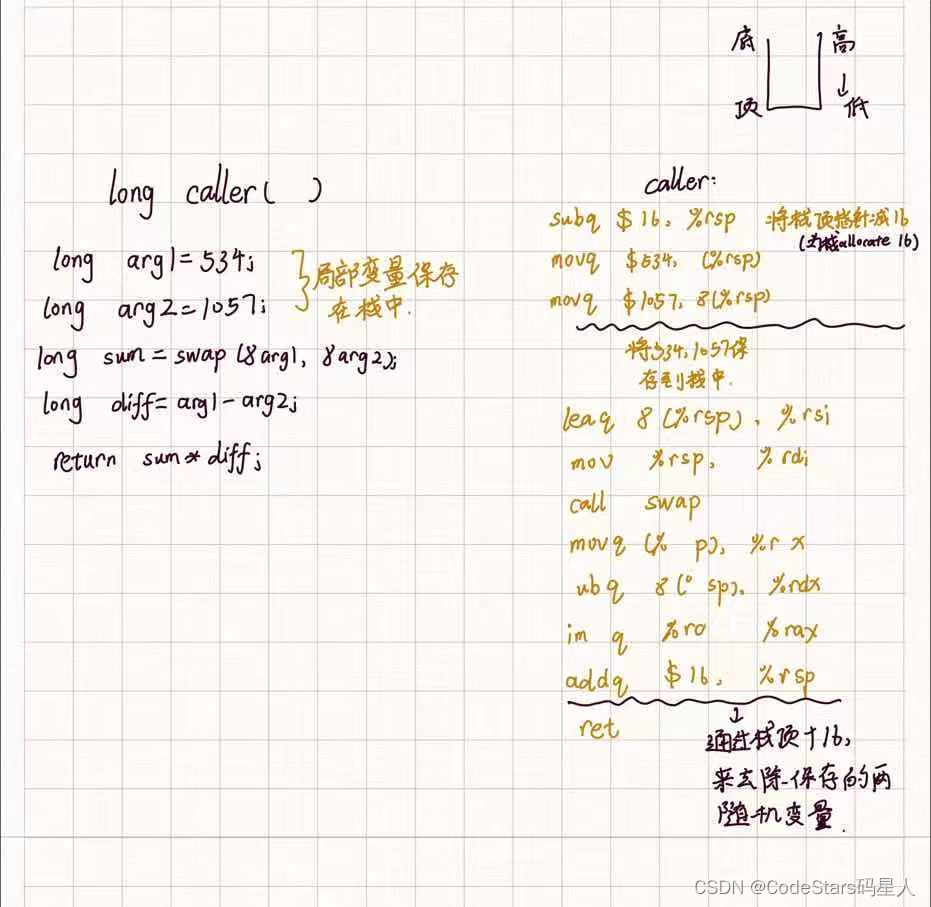 底 高
↓
顶 低
long caller( )
long arg1=534;
long arg2=1057;
局部变量保存
在栈中.
long sum=swap(8arg1, 8arg2);
long diff=arg1-arg2;
return sum*diff;
caller:
subq $16, %rsp 将栈顶指针减16
(为栈allocate 16)
movq $534, (%rsp)
movq $1057, 8(%rsp)
将534,1057保
存到栈中.
leaq 8(%rsp), %rsi
mov %rsp, %rdi
call swap
movq (% p), %r x
ubq 8(° sp), %rdx
im q %ra %rax
addq $16, %rsp
ret
↓
通过栈顶+16,
来去除保存的两
随机变量.
CSDN @CodeStars码星人